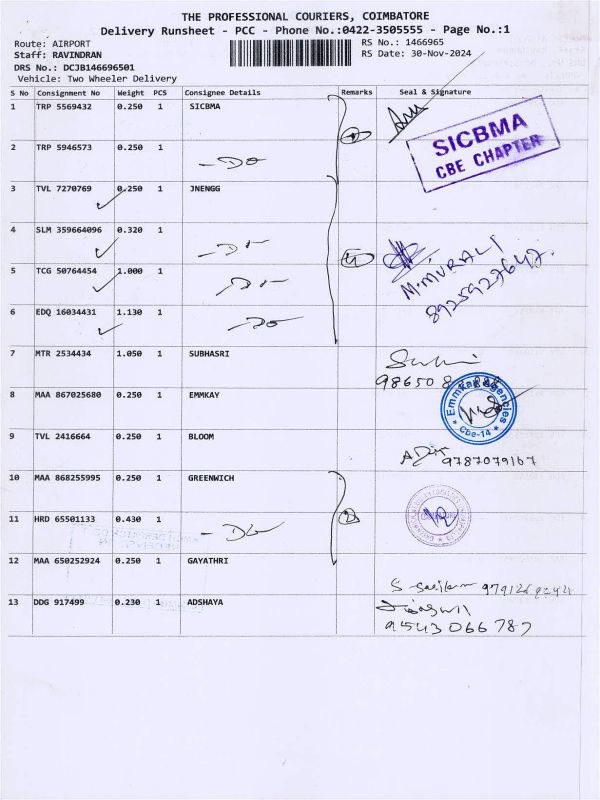 THE PROFESSIONAL COURIERS, COIMBATORE
Delivery Runsheet - PCC - Phone No.:0422-3505555 - Page No.:1
Route: AIRPORT RS No.: 1466965
Staff: RAVINDRAN RS Date: 30-Nov-2024
DRS No.: DCJB146696501
Vehicle: Two Wheeler Delivery
S No Consignment No Weight PCS Consignee Details Remarks Seal & Signature
1 TRP 5569432 0.250 1 SICBMA
SICBMA
CBE CHAPTER
2 TRP 5946573 0.250 1 - Do
3 TVL 7270769 0.250 1 JNENGG
4 SLM 359664096 0.320 1 - Do
M. MURALI
8925927647.
5 TCG 50764454 1.000 1 - Do
6 EDQ 16034431 1.130 1 - Do
7 MTR 2534434 1.050 1 SUBHASRI
98650
8 MAA 867025680 0.250 1 EMMKAY
Emmkay Agencies
Cbe-14
9 TVL 2416664 0.250 1 BLOOM
9787079167
10 MAA 868255995 0.250 1 GREENWICH 2
11 HRD 65501133 0.430 1 - Do
12 MAA 650252924 0.250 1 GAYATHRI
13 DDG 917499 0.230 1 ADSHAYA
9543066787